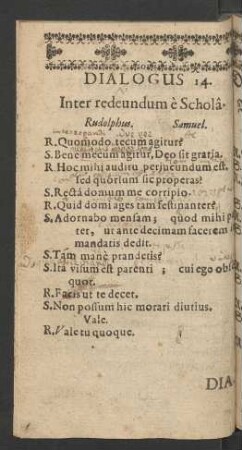 DIALOGUS 14.
Inter redeundum è Scholâ.
Rudolphus, Samuel.
R. Quomodo tecum agitur?
S. Bene mecum agitur, Deo sit gratia.
R. Hoc mihi auditu perjucundum est.
sed quorsum sic properas?
S. Rectà domum me corripio.
R. Quid domi ages tam festinanter?
S. Adornabo mensam; quod mihi p
ter, ut ante decimam facerem
mandatis dedit.
S. Tam manè prandetis?
S. Ita visum est parenti; cui ego ob
quor.
R. Facis ut te decet.
S. Non possum hîc morari diutius.
Vale.
R. Vale tu quoque.
DIA-